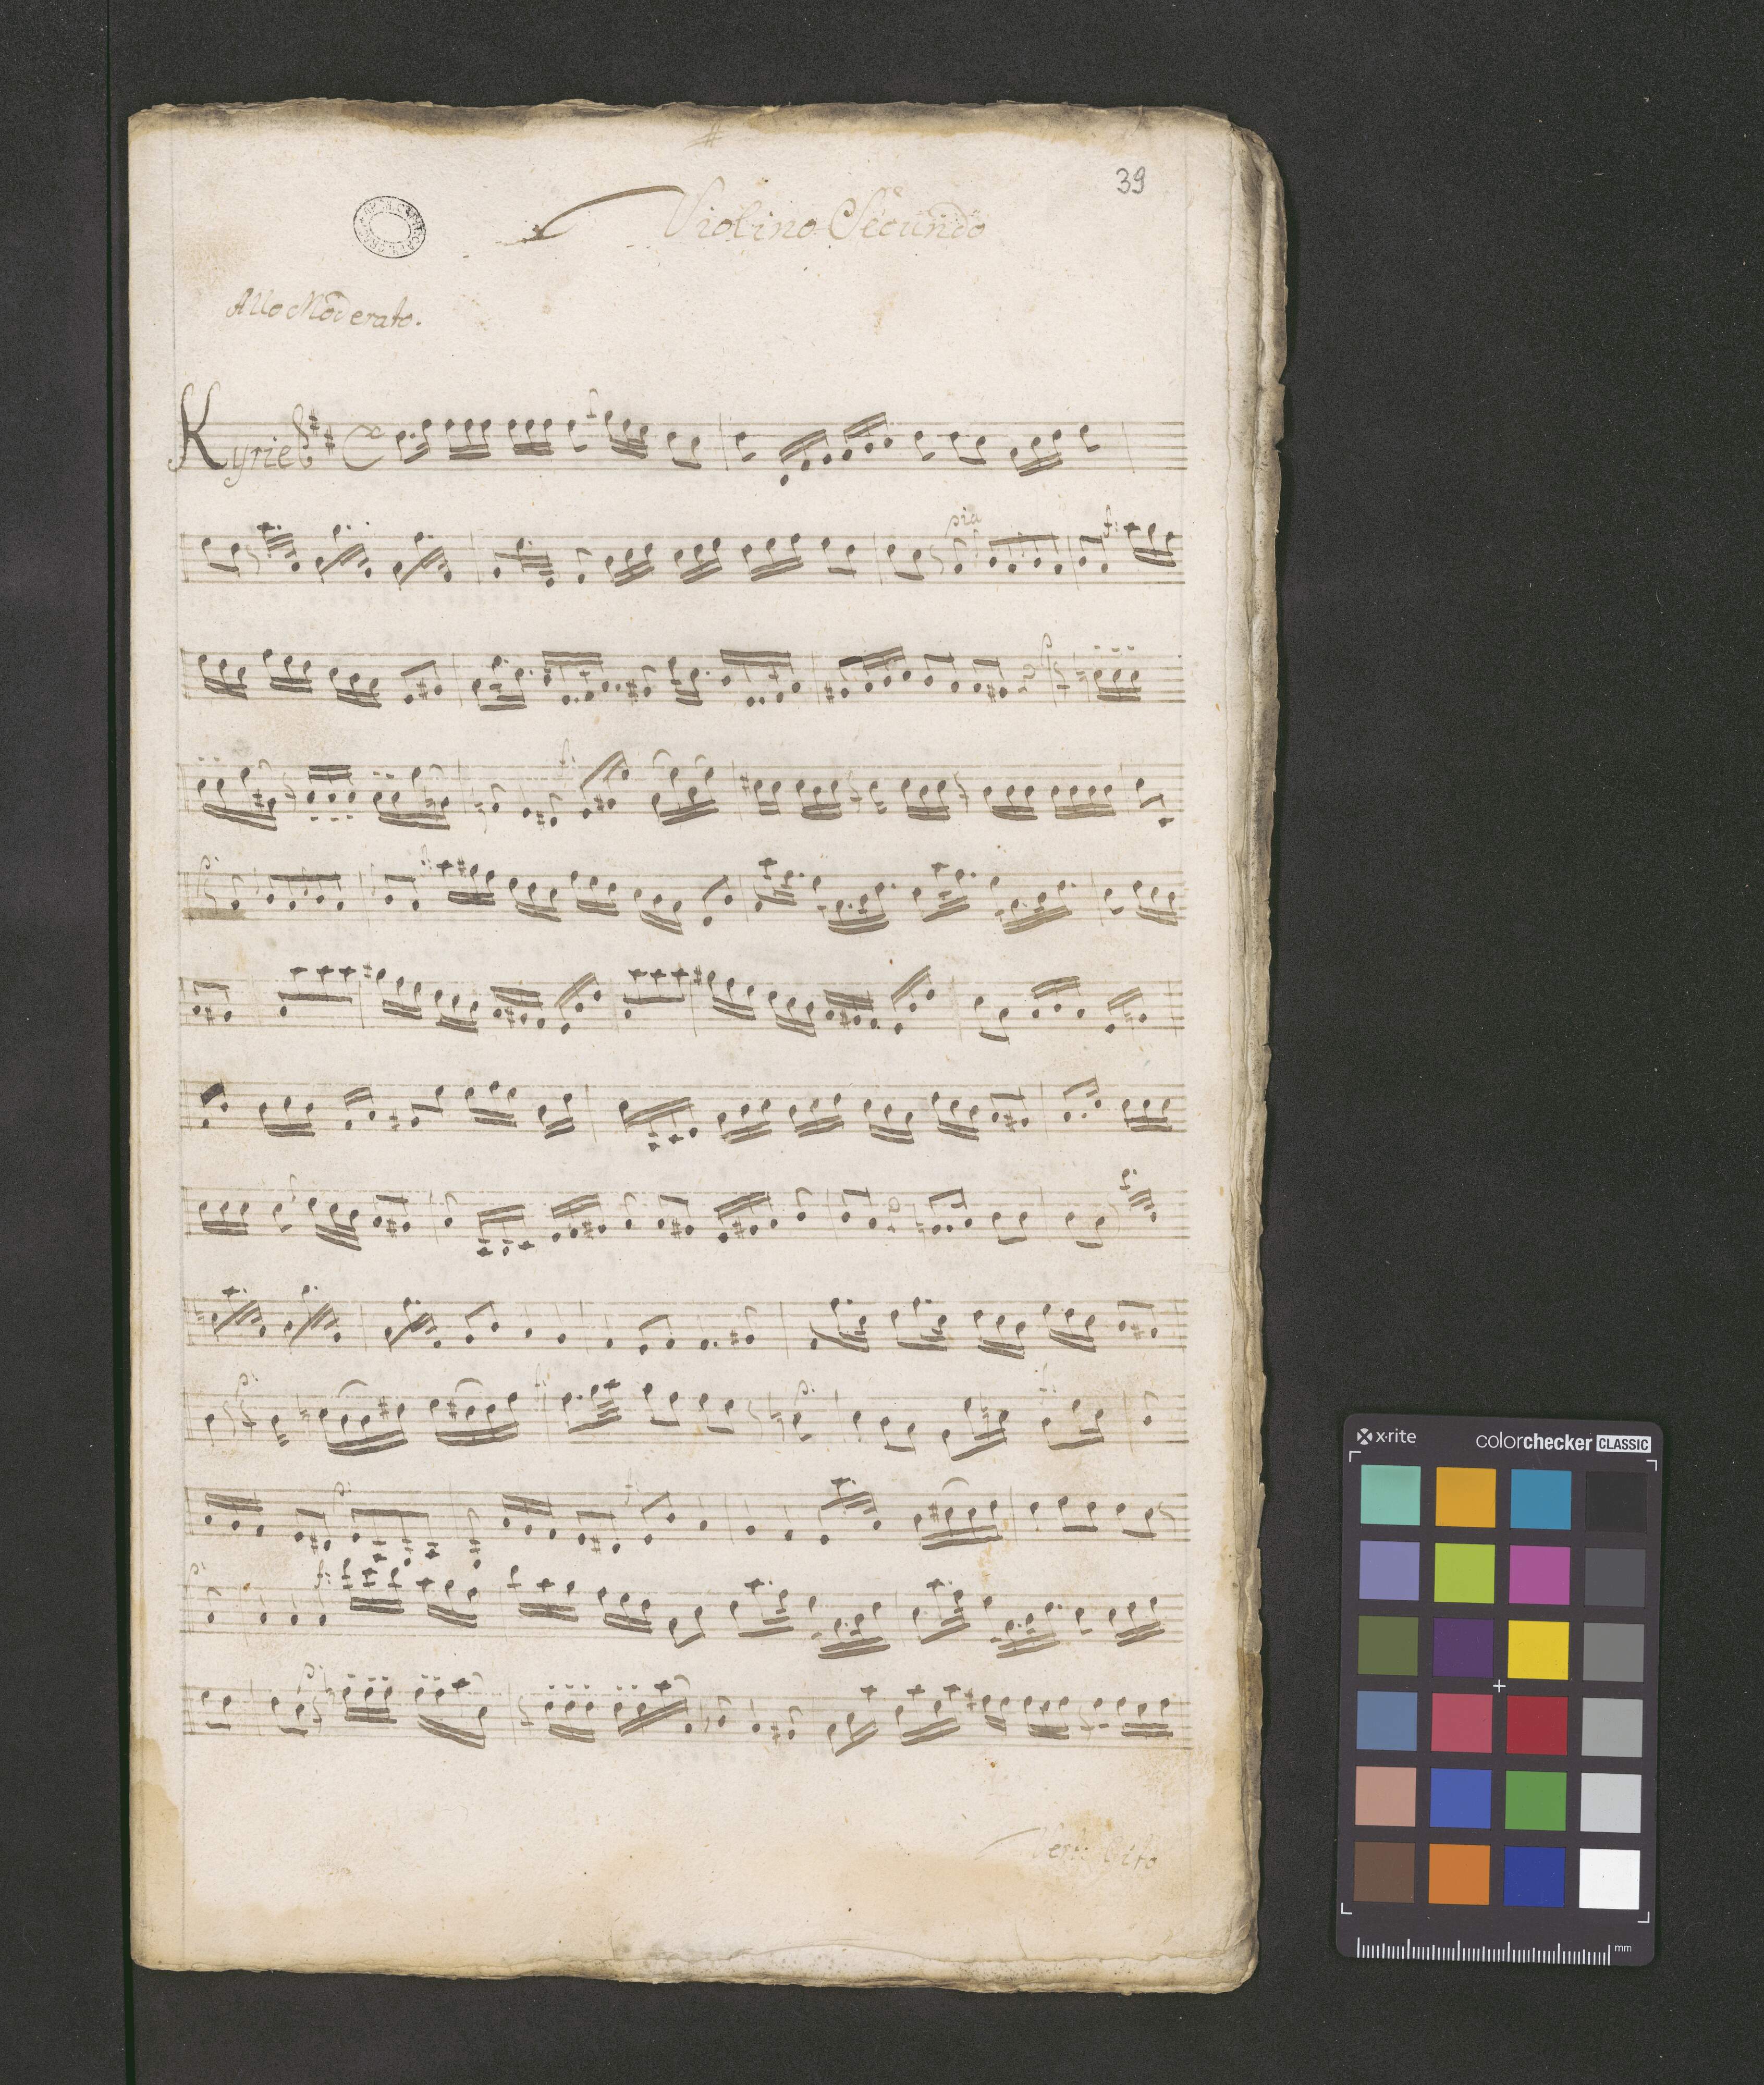 39
Violino Secundo
Allo Moderato.
Kyrie
pia
f:
p:
f:
p:
f:
p:
f:
p:
p:
p:
f:
p:
Verti Cito
x-rite
colorchecker CLASSIC
mm